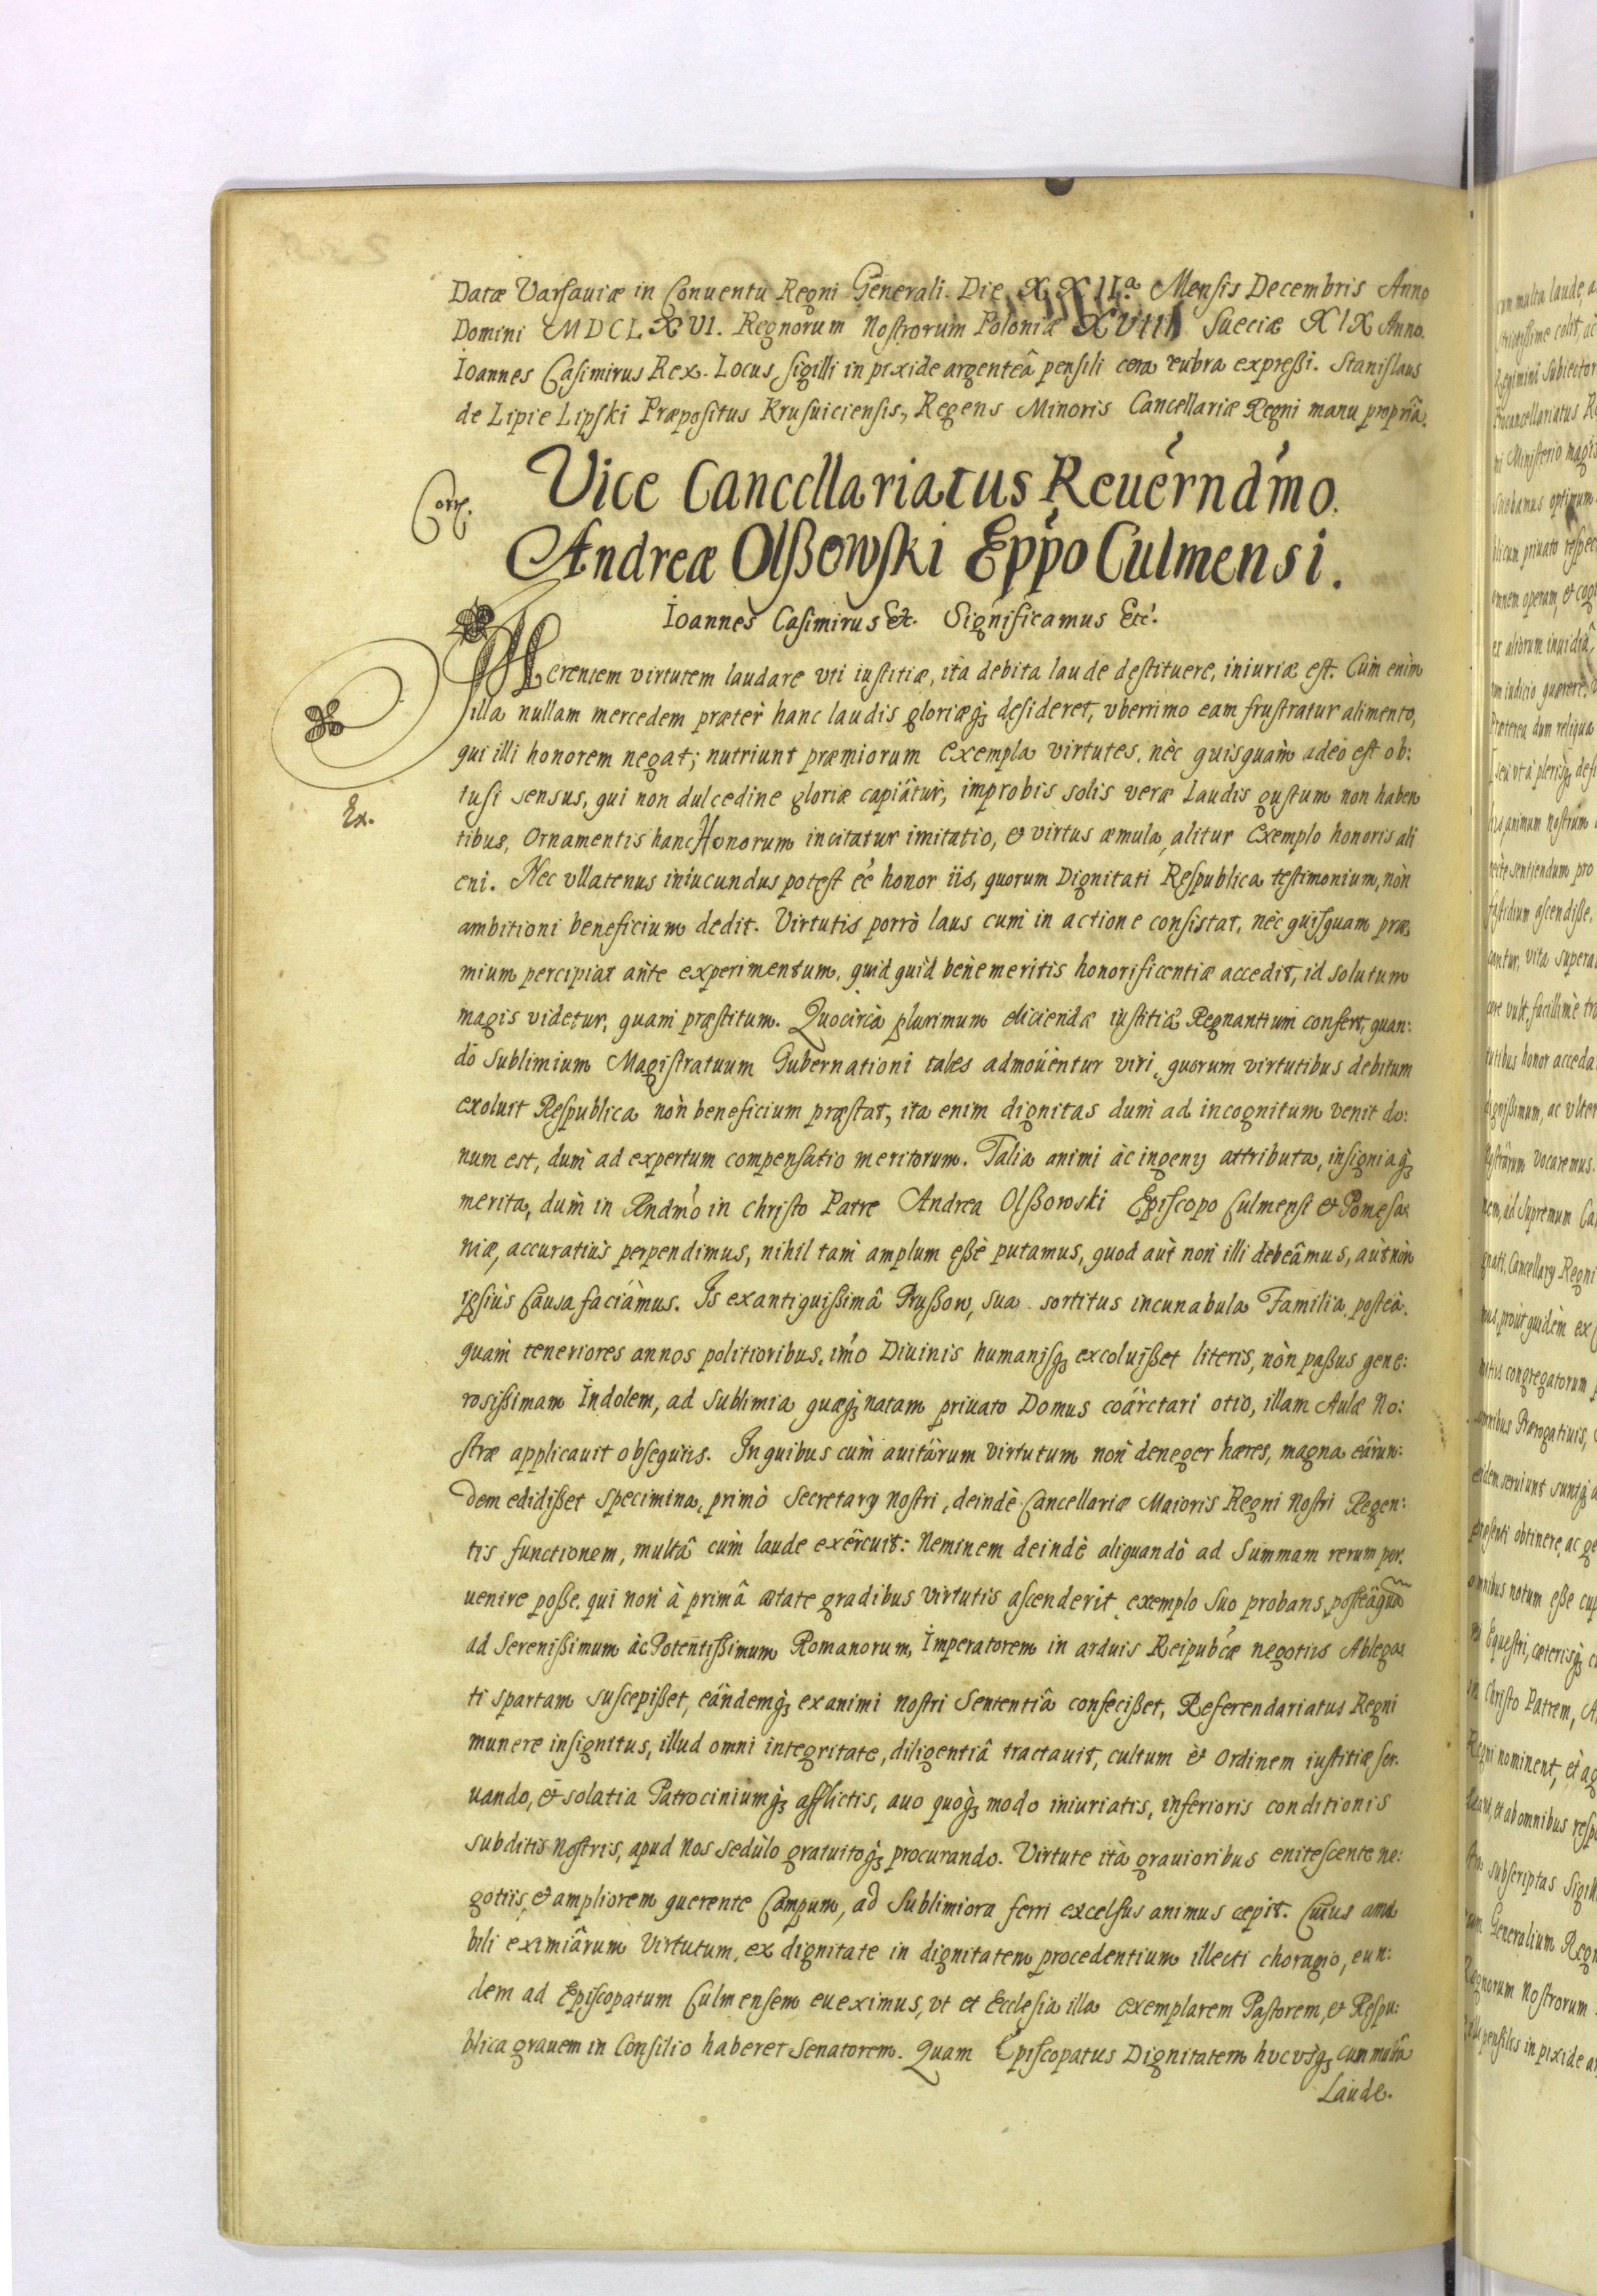 Datæ Varsauiæ in Conuentu Regni Generali. Die XXIIa. Mensis Decembris Anno
Domini MDCLXVI. Regnorum Nostrorum Poloniæ XVIII Sueciæ XIX Anno.
Ioannes Casimirus Rex. Locus, Sigilli in pixide argenteâ pensili cera rubra expreßi. Stanislaus
de Lipie Lipski Præpositus Krusuiciensis, Regens Minoris Cancellariæ Regni manu propriâ.
Corr.
Vice Cancellariatus Reuerndmo.
Andreæ Olßowski Eppo Culmensi.
Ioannes Casimirus Etc. Significamus Etc.
Merentem virtutem laudare vti iustitiæ, ità debita laude destituere, iniuriæ est. Cùm enim
illa nullam mercedem præter hanc laudis gloriæq3 desideret, vberrimo eam frustratur alimento,
qui illi honorem negat; nutriunt præmiorum exempla virtutes, nèc quisquàm adeò est ob:
tusi sensus, qui non dulcedine gloriæ capiâtur, improbis solis veræ Laudis gustum non haben
Ex.
tibus, Ornamentis hanc Honorum incitatur imitatio, & virtus æmula, alitur Exemplo honoris ali
eni. Nec vllatenus iniucundus potest eé honor iis, quorum Dignitati Respublica testimonium, nòn
ambitioni beneficium dedit. Virtutis porrò laus cum in actione consistat, nèc quisquam præ
mium percipiat ànte experimentum, quidquid benemeritis honorificentiæ accedit, id solutum
magis videtur, quam præstitum. Quocircà plurimum eliciendæ iustitiæ Regnantium confert, quan:
dò sublimium Magistratuum Gubernationi tales admouentur viri, quorum virtutibus debitum
exoluit Respublica nòn beneficium præstat, ita enim dignitas dum ad incognitum venit do:
num est, dum ad expertum compensatio meritorum. Talia animi àc ingeny attributa, insigniaq3
merita, dum in Rndmo in Christo Patre Andrea Olßowski Episcopo Culmensi & Pomesa
niæ, accuratiùs perpendimus, nihil tam amplum eßè putamus, quod aùt non illi debeâmus, aùt nòn
ipsiùs Causa faciâmus. Is ex antiquißimâ Prußow, sua sortitus incunabula Familia, posteà
quam teneriores annos politioribus, imò Diuinis humanisq3 excoluißet literis, nòn paßus gene:
rosißimam Indolem, ad sublimia quæq3 natam priuato Domus coârctari otio, illam Aulæ No:
stræ applicauit obsequiis. In quibus cùm auitârum virtutum non deneger hæres, magna eârun:
dem edidißet specimina, primò Secretary nostri, deindè Cancellariæ Maioris Regni Nostri Regen:
tis functionem, multâ cùm laude exêrcuit: Neminem deindè aliquandò ad Summam rerum per.
uenire poße, qui non à primâ ætate gradibus virtutis ascenderit, exemplo suo probans, posteàqua
ad Serenißimum àc Potentißimum Romanorum, Imperatorem in arduis Reipubcæ negotiis Ablega
ti spartam suscepißet, eândemq3 ex animi nostri Sententiâ confecißet, Referendariatus Regni
munere insignitus, illud omni integritate, diligentiâ tractauit, cultum & ordinem iustitiæ ser.
uando, & solatia Patrociniumq3 afflictis, auo quoq3 modo iniuriatis, inferioris conditionis
subditis nostris, apud Nos sedùlo gratuitoq3 procurando. Virtute ità grauioribus enitescente ne:
gotiis, & ampliorem querente Campum, ad Sublimiora ferri excelsus animus cepit. Cuius ama
bili eximiârum Virtutum, ex dignitate in dignitatem procedentium illecti choragio, eun:
dem ad Episcopatum Culmensem eueximus, vt et Ecclesia illa exemplarem Pastorem, & Respu:
blica grauem in Consilio haberet Senatorem. Quam Episcopatus Dignitatem hvcvsq3 cum multâ
Laude.